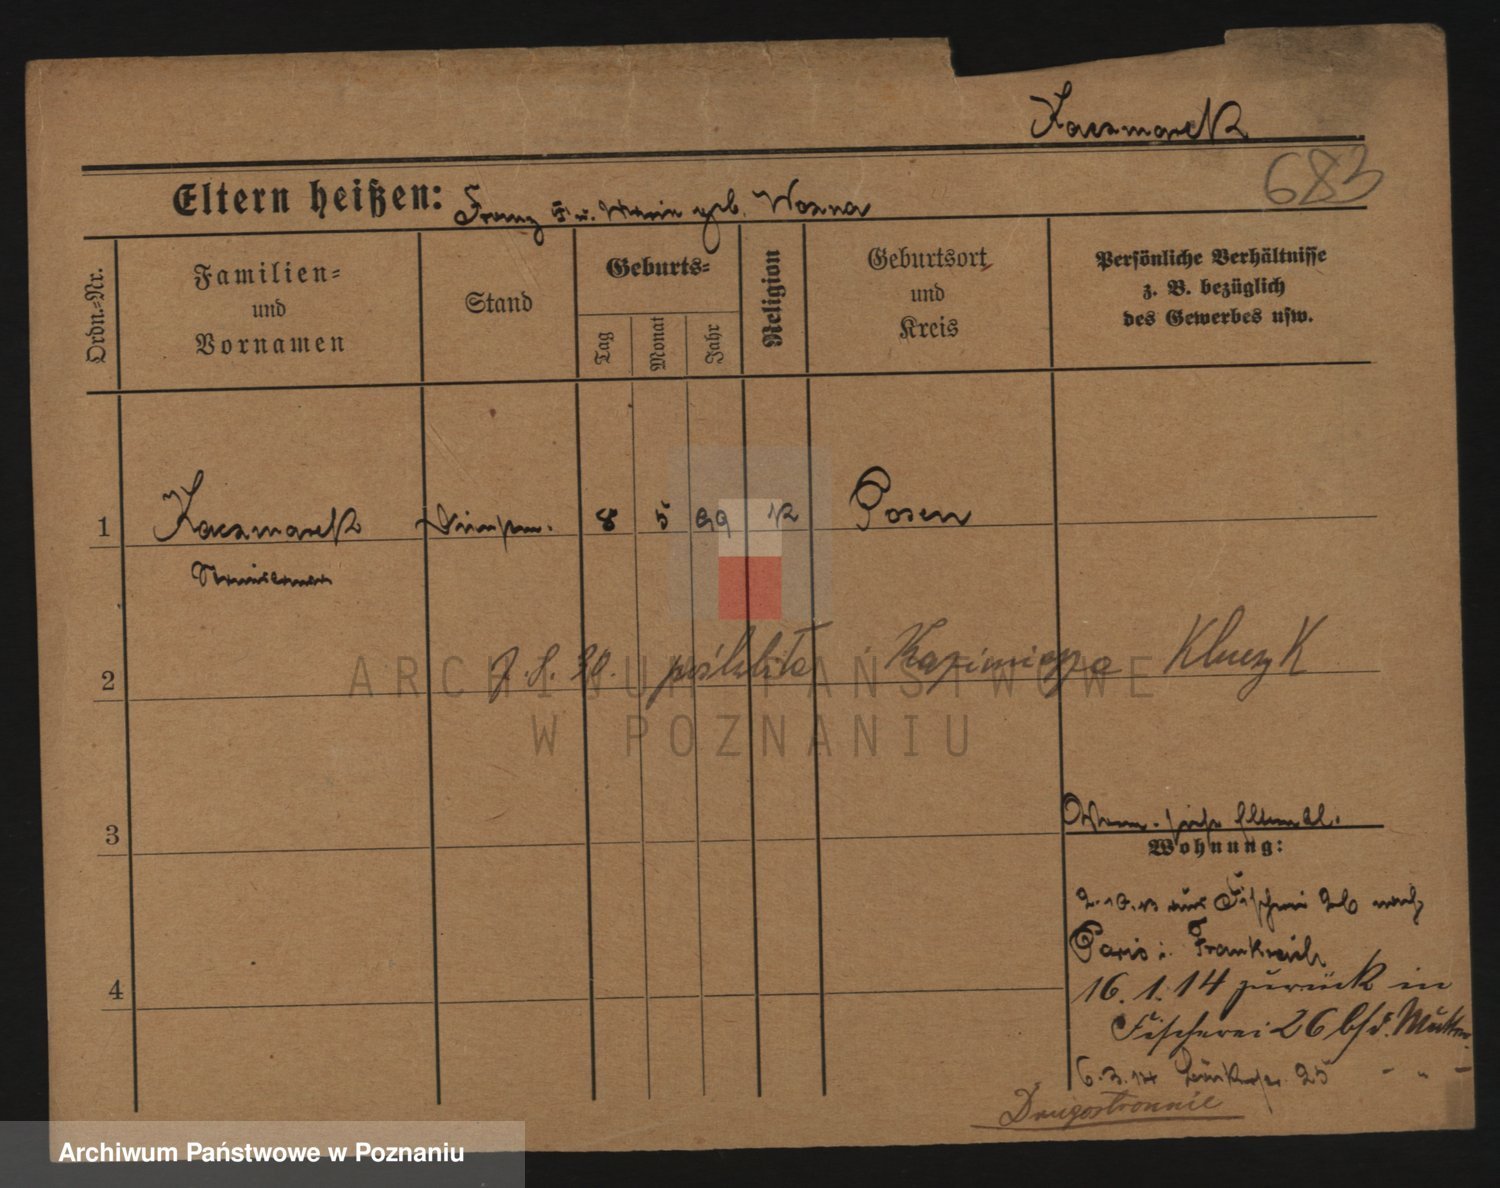 Kaczmarek
683
Eltern heißen: Franz † u. Marie geb. Wozna
Ordn.-Nr.
Familien-
und
Vornamen
Stand
Geburts-
Tag
Monat
Jahr
Religion
Geburtsort
und
Kreis
Persönliche Verhältnisse
z. B. bezüglich
des Gewerbes usw.
1 Kaczmarek 8 5 99 Posen
2 Kazimierza Kluczyk
ARCHIWUM PAŃSTWOWE
W POZNANIU
3
Wohnung:
2.10.13 aus Fischerei 26 nach
Paris i. Frankreich
4
16.1.14 zurück in
Fischerei 26 bei d. Mutter
6.3.14 25 - „ -
Drugostronnie
Archiwum Państwowe w Poznaniu